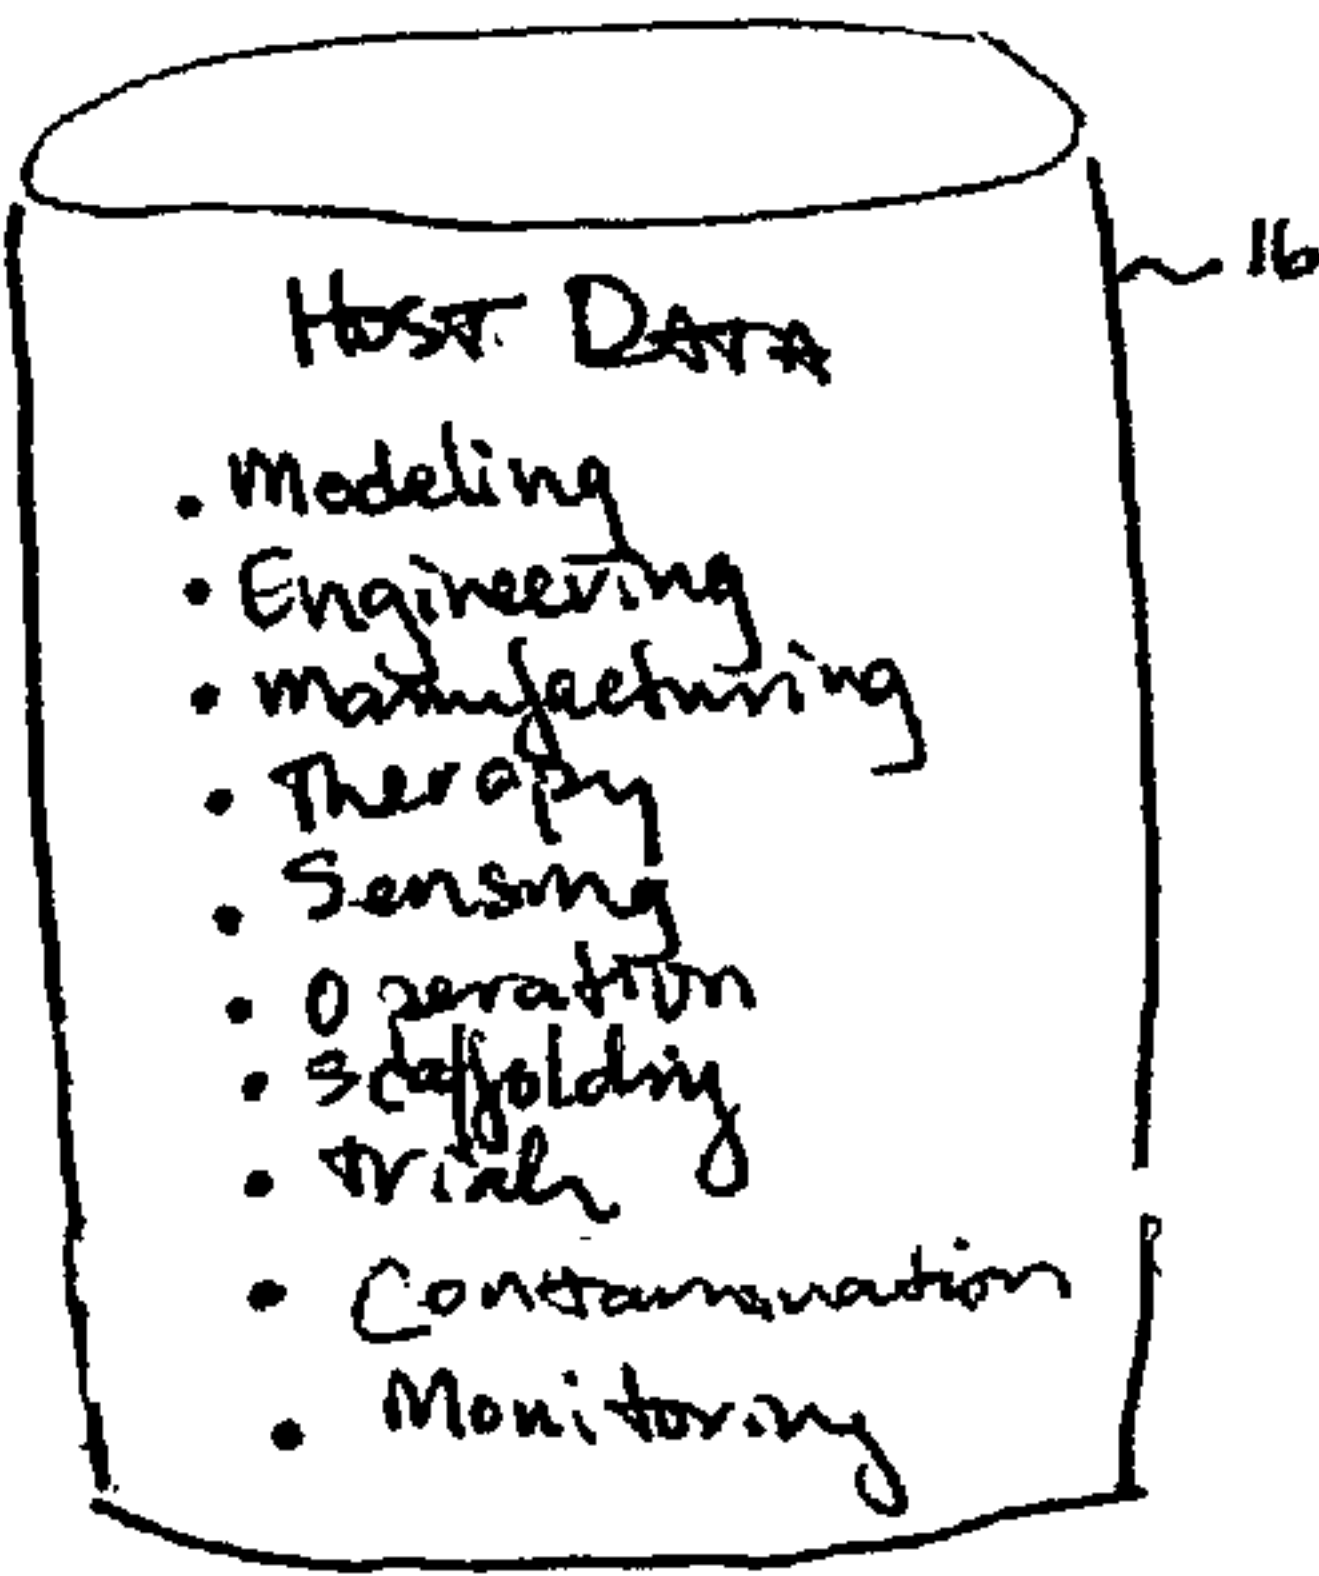 16
HOST DATA
• Modeling
• Engineering
• Manufacturing
• Therapy
• Sensing
• Operation
• Scaffolding
• Trials
• Contamination
• Monitoring